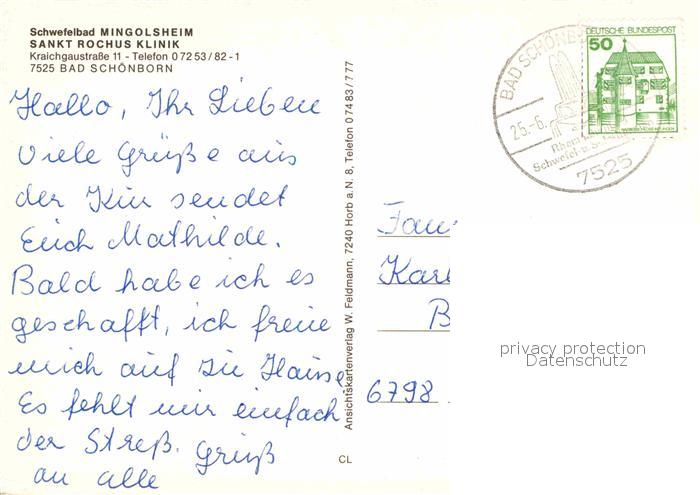 Schwefelbad MINGOLSHEIM
SANKT ROCHUS KLINIK
Kraichgaustraße 11 - Telefon 0 72 53 / 82 - 1
7525 BAD SCHÖNBORN
Hallo, Ihr Lieben
viele Grüße aus
der Kur sendet
Euch Mathilde.
Bald habe ich es
geschafft, ich freue
mich auf zu Hause.
Es fehlt mir einfach
der Streß. Gruß
an alle
Ansichtskartenverlag W. Feldmann, 7240 Horb a. N. 8, Telefon 0 74 83 / 7 77
CL
BAD SCHÖNB
25.-6.
7525
DEUTSCHE BUNDESPOST
50
Fam
Karl
B
6798
privacy protection
Datenschutz